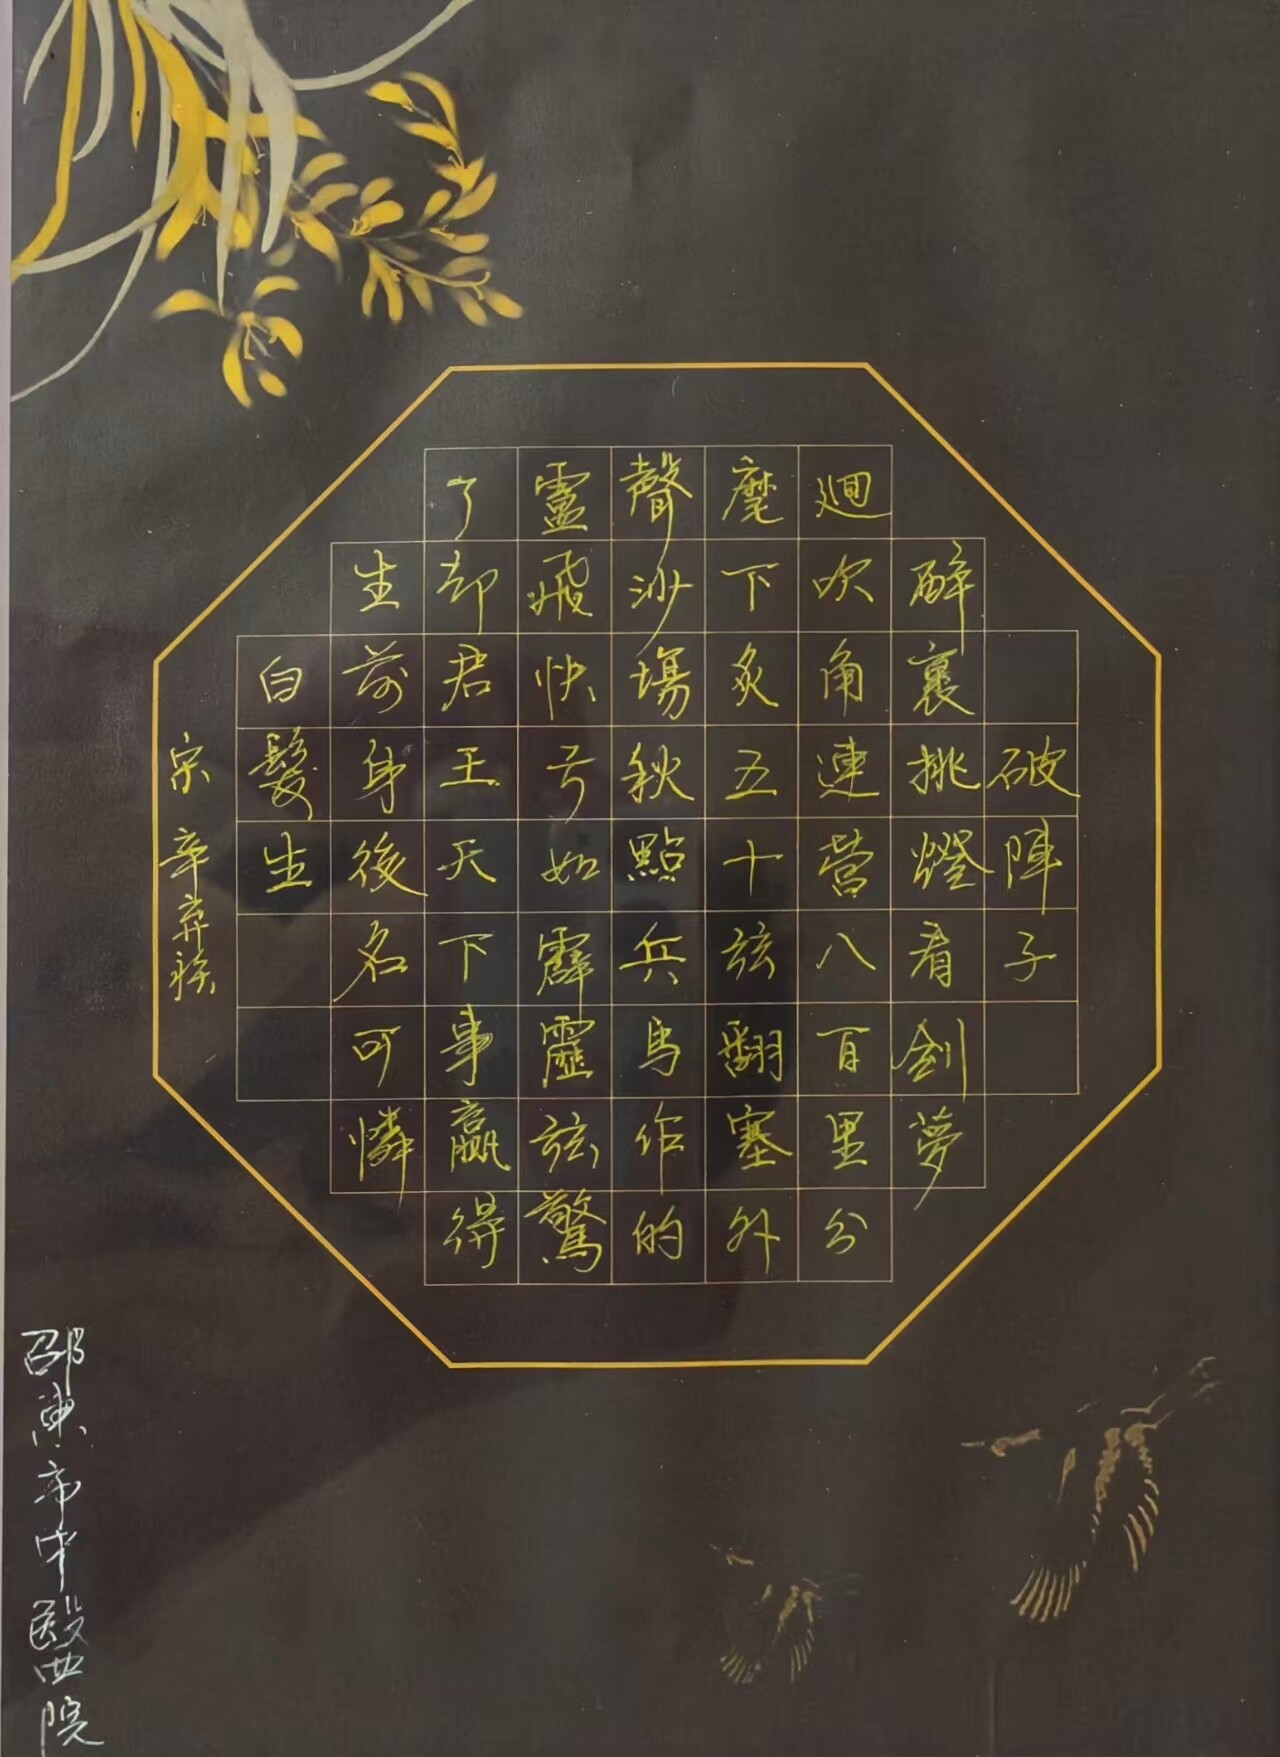 破陣子
醉裏挑燈看劍夢
廻吹角連營八百里分
麾下炙五十弦翻塞外
聲沙場秋點兵馬作的
靈飛快弓如霹靂弦驚
了却君王天下事贏得
生前身後名可憐
白髮生
宋 辛弃疾
邵東市中醫西院